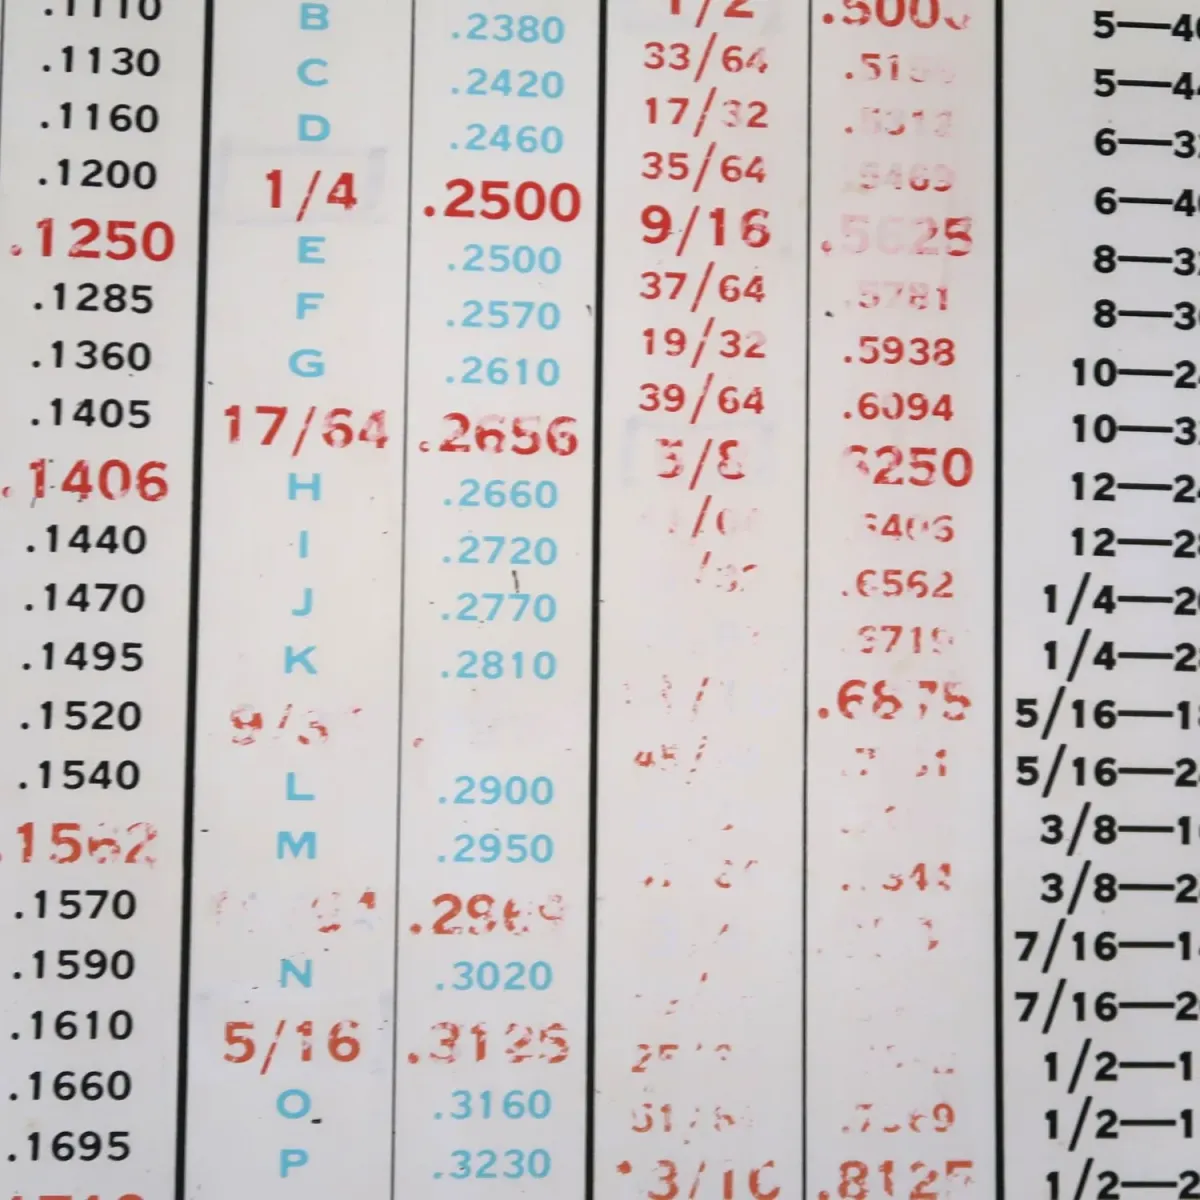 .1110 B .2380 1/2 .500 5—4
.1130 C .2420 33/64 .51 5—4
.1160 D .2460 17/32 .5312 6—3
.1200 1/4 .2500 35/64 .5469 6—4
.1250 E .2500 9/16 .5625 8—3
.1285 F .2570 37/64 .5781 8—3
.1360 G .2610 19/32 .5938 10—2
.1405 17/64 .2656 39/64 .6094 10—3
.1406 H .2660 5/8 .6250 12—2
.1440 I .2720 .6406 12—2
.1470 J .2770 .6562 1/4—2
.1495 K .2810 .6719 1/4—2
.1520 .6875 5/16—1
.1540 L .2900 5/16—2
.1562 M .2950 3/8—1
.1570 .2969 3/8—2
.1590 N .3020 7/16—1
.1610 5/16 .3125 7/16—2
.1660 O .3160 51/64 .7969 1/2—1
.1695 P .3230 13/16 .8125 1/2—1
1/2—2